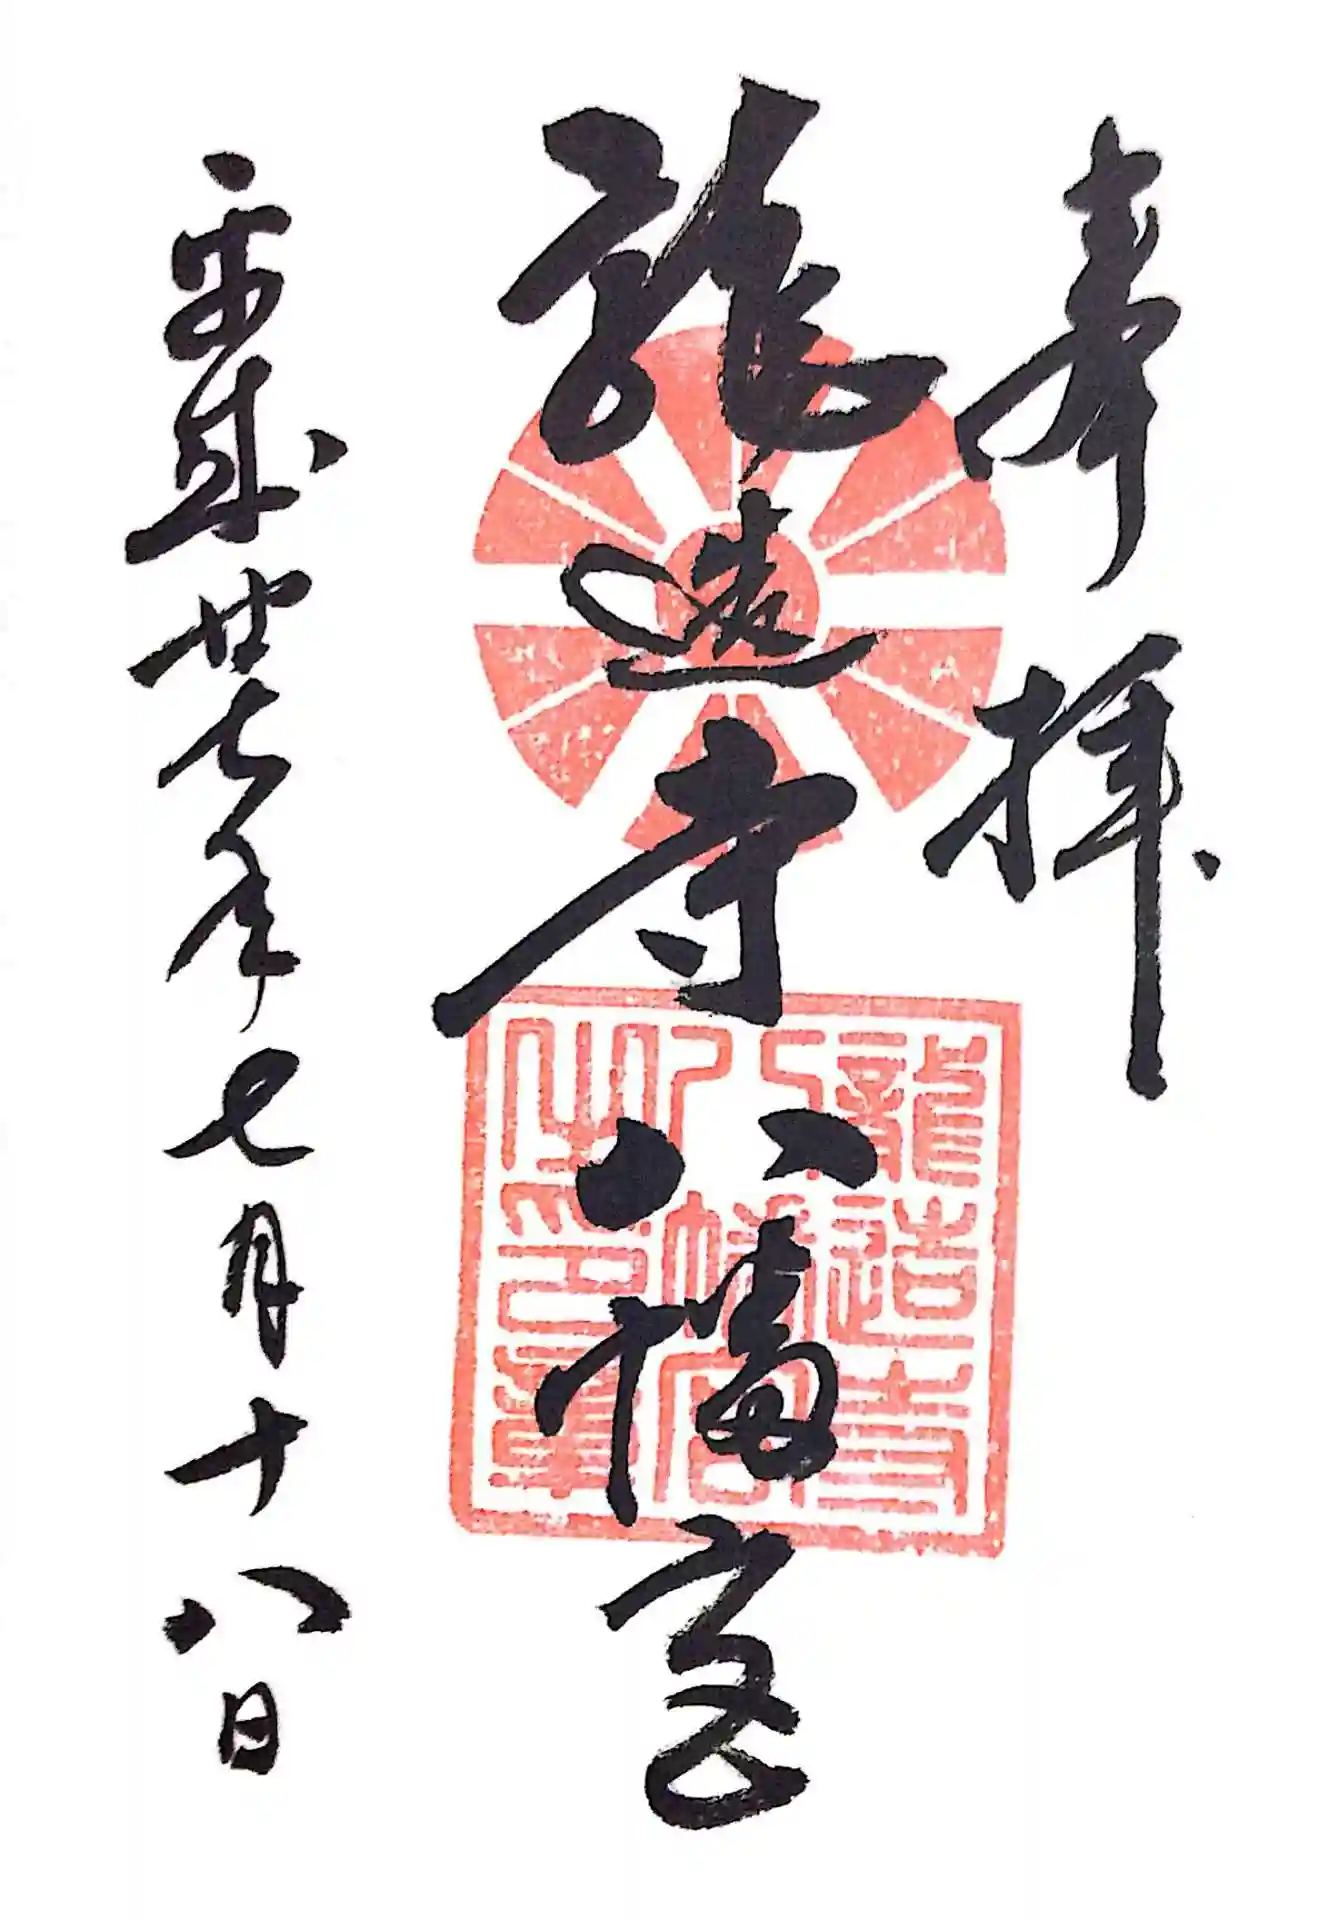 奉拝
龍造寺八幡宮
平成廿七年七月十八日
龍造寺
八幡宮
之印章